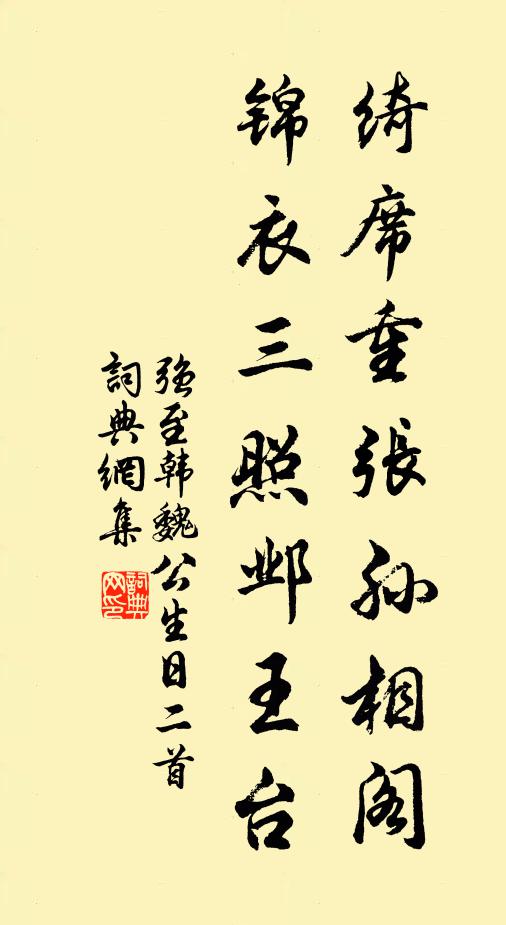 绮席重張孙相阁
锦衣三照邺王台
强至韩魏公生日二首
詞典網集
詞典网印